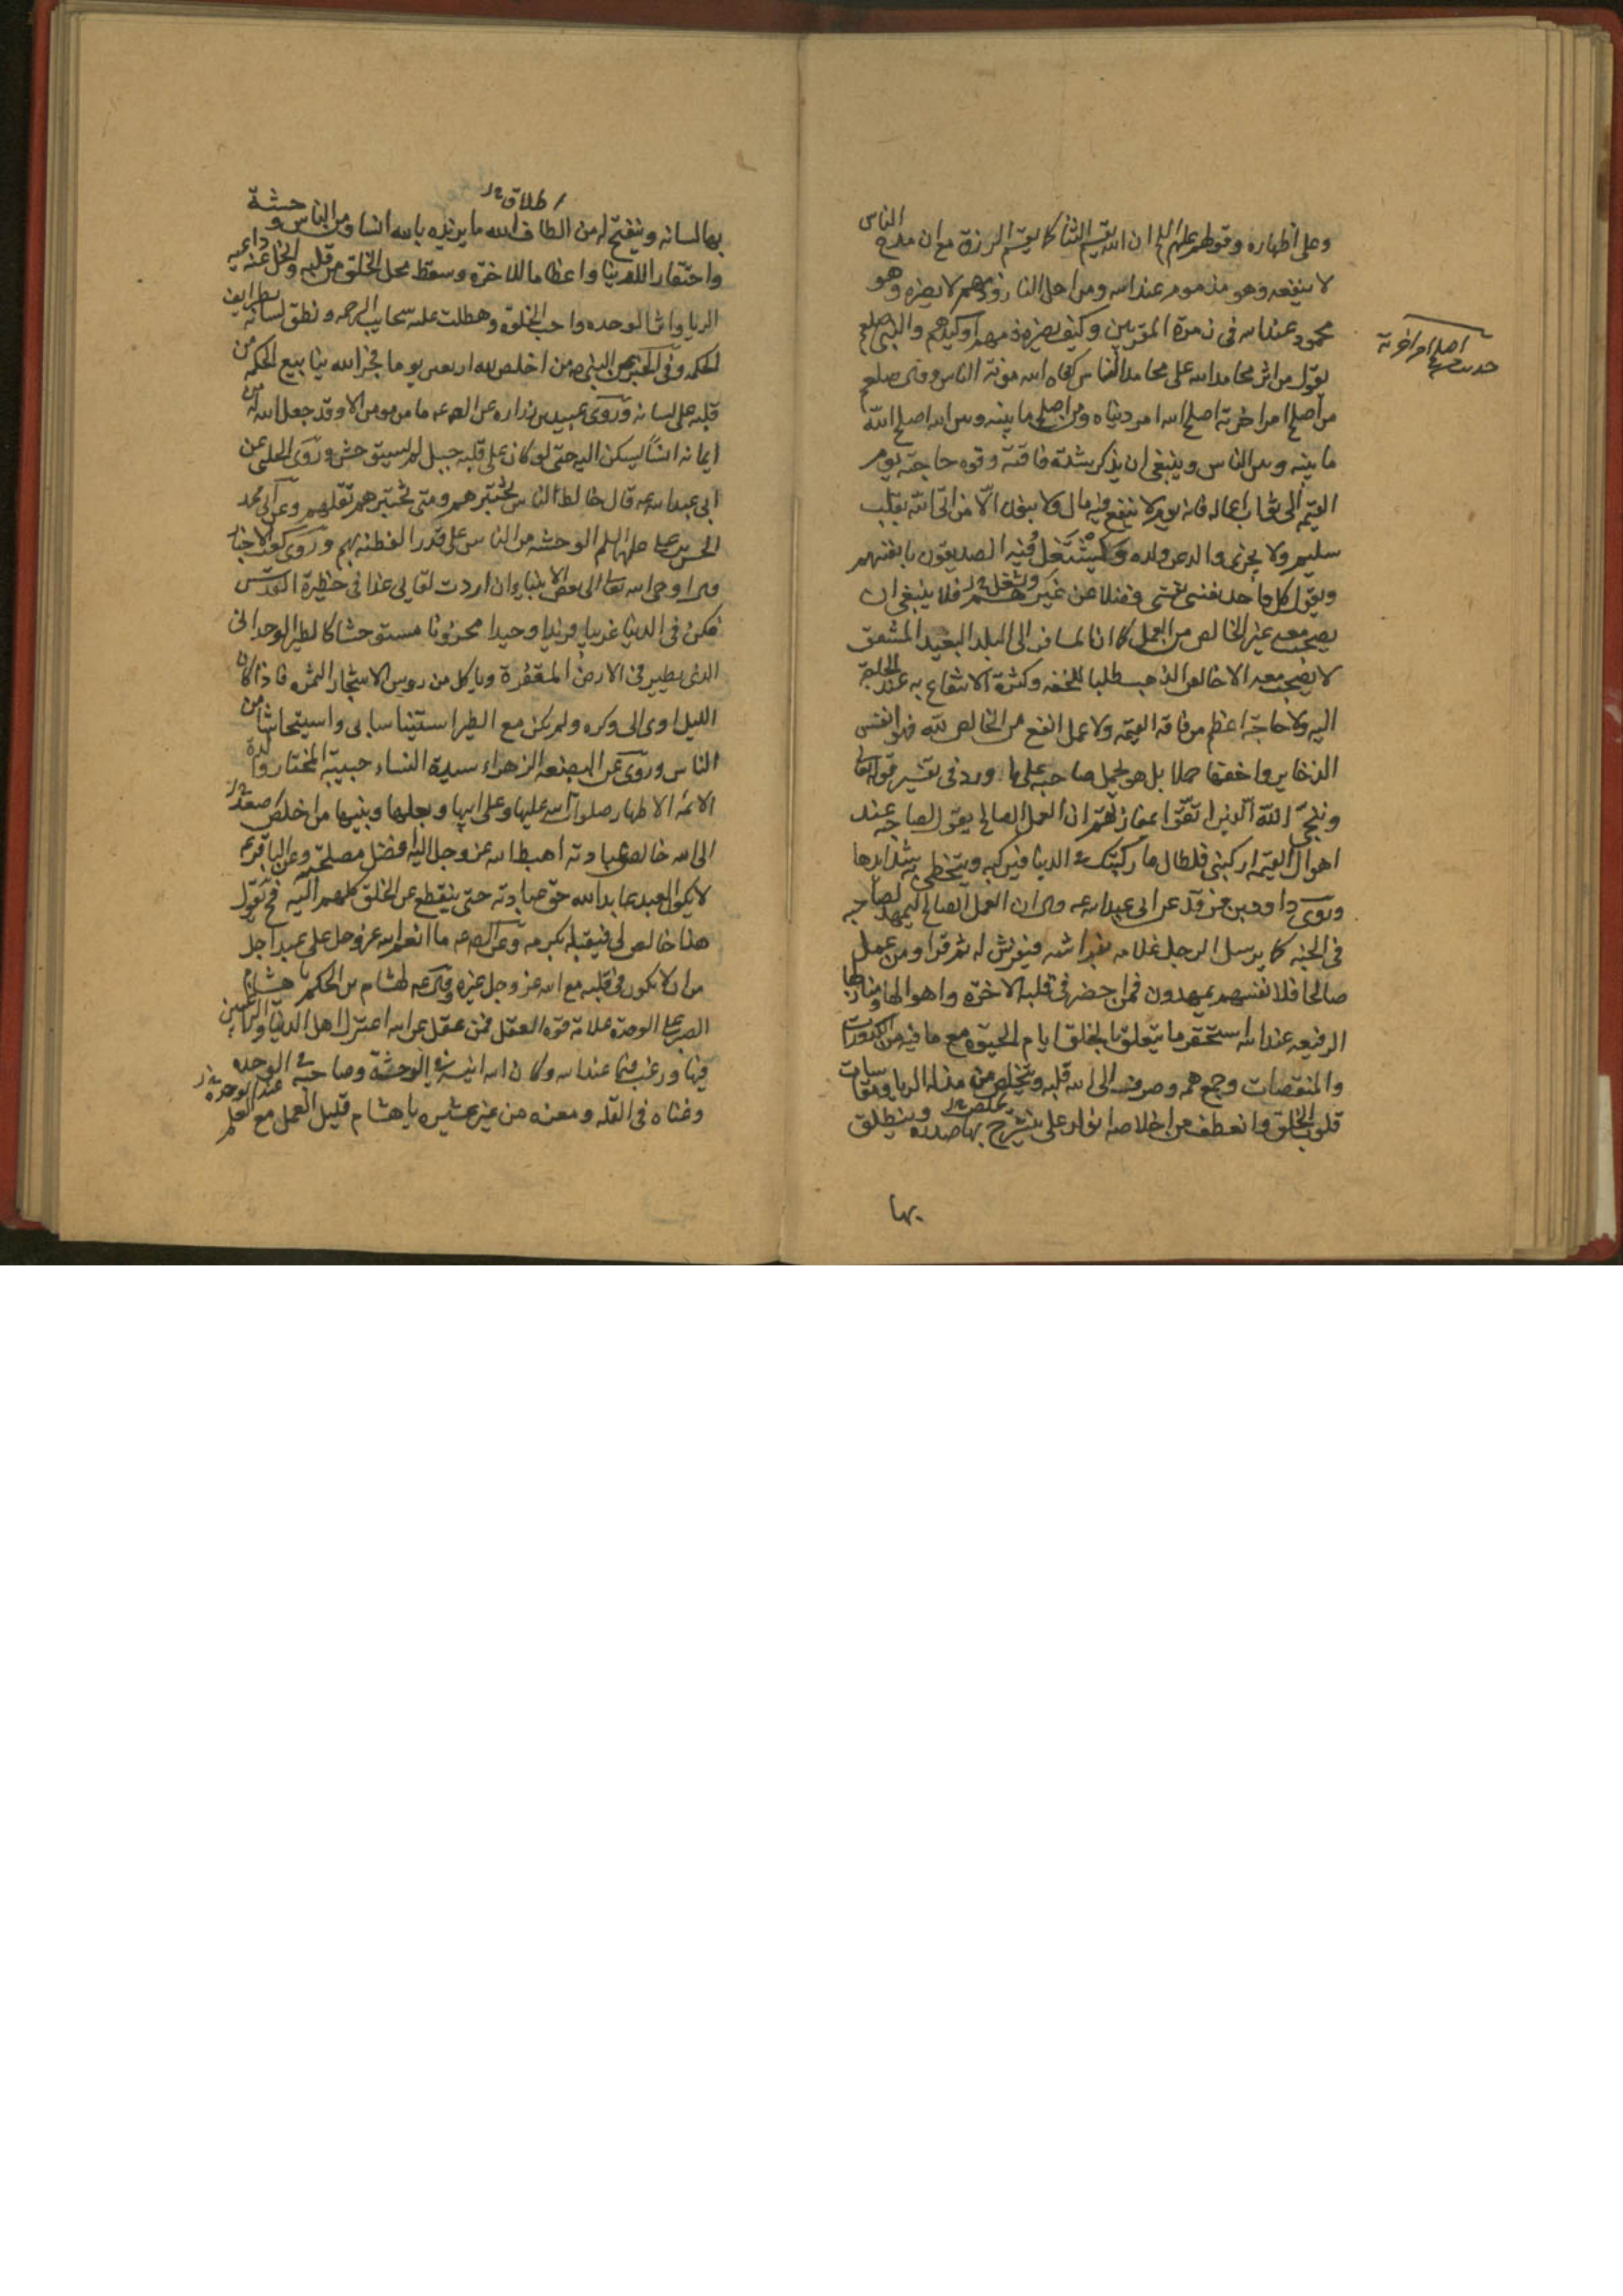 وعلى اظهاره وقولهم عليهم السلام ان الله يقسم الثنا كما يقسم الرزق مع ان مدح الناس
لا ينفعه وهو مذموم عند الله ومن اهل النار وذمهم لا يضره وهو
محمود عند الله في زمرة المقربين وكيف يضره ذمهم او كيدهم والنبي صلعم
يقول من اثر محامد الله على محامد الناس كفاه الله مونة الناس وقال صلعم
من اصلح امر اخرته اصلح الله امر دنياه ومن اصلح ما بينه وبين الله اصلح الله
ما بينه وبين الناس وينبغي ان يذكر شدة فاقته وقوه حاجته يوم
القيمة الى ثواب اعماله فانه يوم لا ينفع فيه مال ولا بنون الا من اتى الله بقلب
سليم ولا يجزى والد عن ولده ويشتغل فيه الصديقون بانفسهم
ويقول كل واحد نفسي نفسي فضلا عن غيرهم فلا ينبغي ان
يصحب معه غير الخالص من العمل كما ان المسافر الى البلد البعيد المشفق
لا يصحب معه الا خالص الذهب طلبا للخفه وكثرة الانتفاع به عند الحاجة
اليه ولا حاجة اعظم من فاقه القيمه ولا عمل انفع من الخالص لله فهو انفس
الذخاير واخفها حملا بل هو يحمل صاحبه على ما ورد في تفسير قوله تعالى
وينجي الله الذين اتقوا بمفازتهم ان العمل الصالح يقول لصاحبه عند
اهوال القيمه اركبني فلطال ما ركبتك في الدنيا فيركبه ويتخطى به شدايدها
وروى داود بن فرقد عن ابي عبد الله عه قال ان العمل الصالح ليمهد لصاحبه
في الجنه كما يرسل الرجل غلامه بفراشه فيفرش له ثم قرا ومن عمل
صالحا فلانفسهم يمهدون فمن احضر في قلبه الاخرة واهوالها ومنازلها
الرفيعه عند الله استحقر ما يتعلق بالخلق ايام الحيوة مع ما فيه من الكدورات
والمنقصات وجمع همه وصرف الى الله قلبه وتخلص من مذلة الريا ومقاسات
قلوب الخلق وانعطف من اخلاصه انوار على قلبه ينشرح بها صدره وينطلق
بها
اصلح امر اخرته
اطلاق
بها لسانه وينفتح له من الطاف الله ما يزيده بالله انسا ومن الناس وحشة
واحتقارا للدنيا واعظاما للاخرة وسقط محل الخلق من قلبه وانحل عنه داعيه
الريا واثر الوحده واحب الخلوه وهطلت عليه سحايب الرحمه ونطق لسانه بطرايف
الحكمه وفي الخبر عن النبي ص من اخلص لله اربعين يوما فجر الله ينابيع الحكمه من
قلبه على لسانه وروى عبيد بن زراره عن الصه عه ما من مومن الا وقد جعل الله له من
ايمانه انسا يسكن اليه حتى لو كان على قله جبل لم يستوحش وروى الحلبي عن
ابي عبد الله عه قال خالط الناس تختبرهم ومتى تختبرهم تقلهم وعن ابي محمد
الحسن بن على عليهما السلم الوحشه من الناس على قدر الفطنه بهم وروى كعب الاحبار
قال اوحى الله تعالى الى بعض الانبياء ان اردت لقايى غدا في حظيرة القدس
فكن في الدنيا غريبا فريدا وحيدا محزونا مستوحشا كالطير الوحداني
الذي يطير في الارض المقفرة وياكل من روس الاشجار المثمره فاذا كان
الليل اوى الى وكره ولم يكن مع الطير استيناسا بي واستيحاشا من
الناس وروى عن البضعه الزهراء سيدة النساء حبيبة المختار والدة
الائمة الاطهار صلوات الله عليها وعلى ابيها وبعلها وبنيها من اخلص صعد
الى الله خالص عبادته اهبط الله عز وجل اليه افضل مصلحته وعن الباقر عه
لا يكون العبد عابدا لله حق عبادته حتى ينقطع عن الخلق كلهم اليه فح يقول
هذا خالص لي فيقبله بكرمه وعن الصه عه ما انعم الله عز وجل على عبد اجل
من ان لا يكون في قلبه مع الله عز وجل غيره وقال عه لهشام بن الحكم يا هشام
الصبر على الوحدة علامة قوه العقل فمن عقل عن الله اعتزل اهل الدنيا والراغبين
فيها ورغب فيما عند الله وكان الله انيسه في الوحشة وصاحبه في الوحده
وغناه في القله ومعزه من غير عشيره يا هشام قليل العمل مع العلم